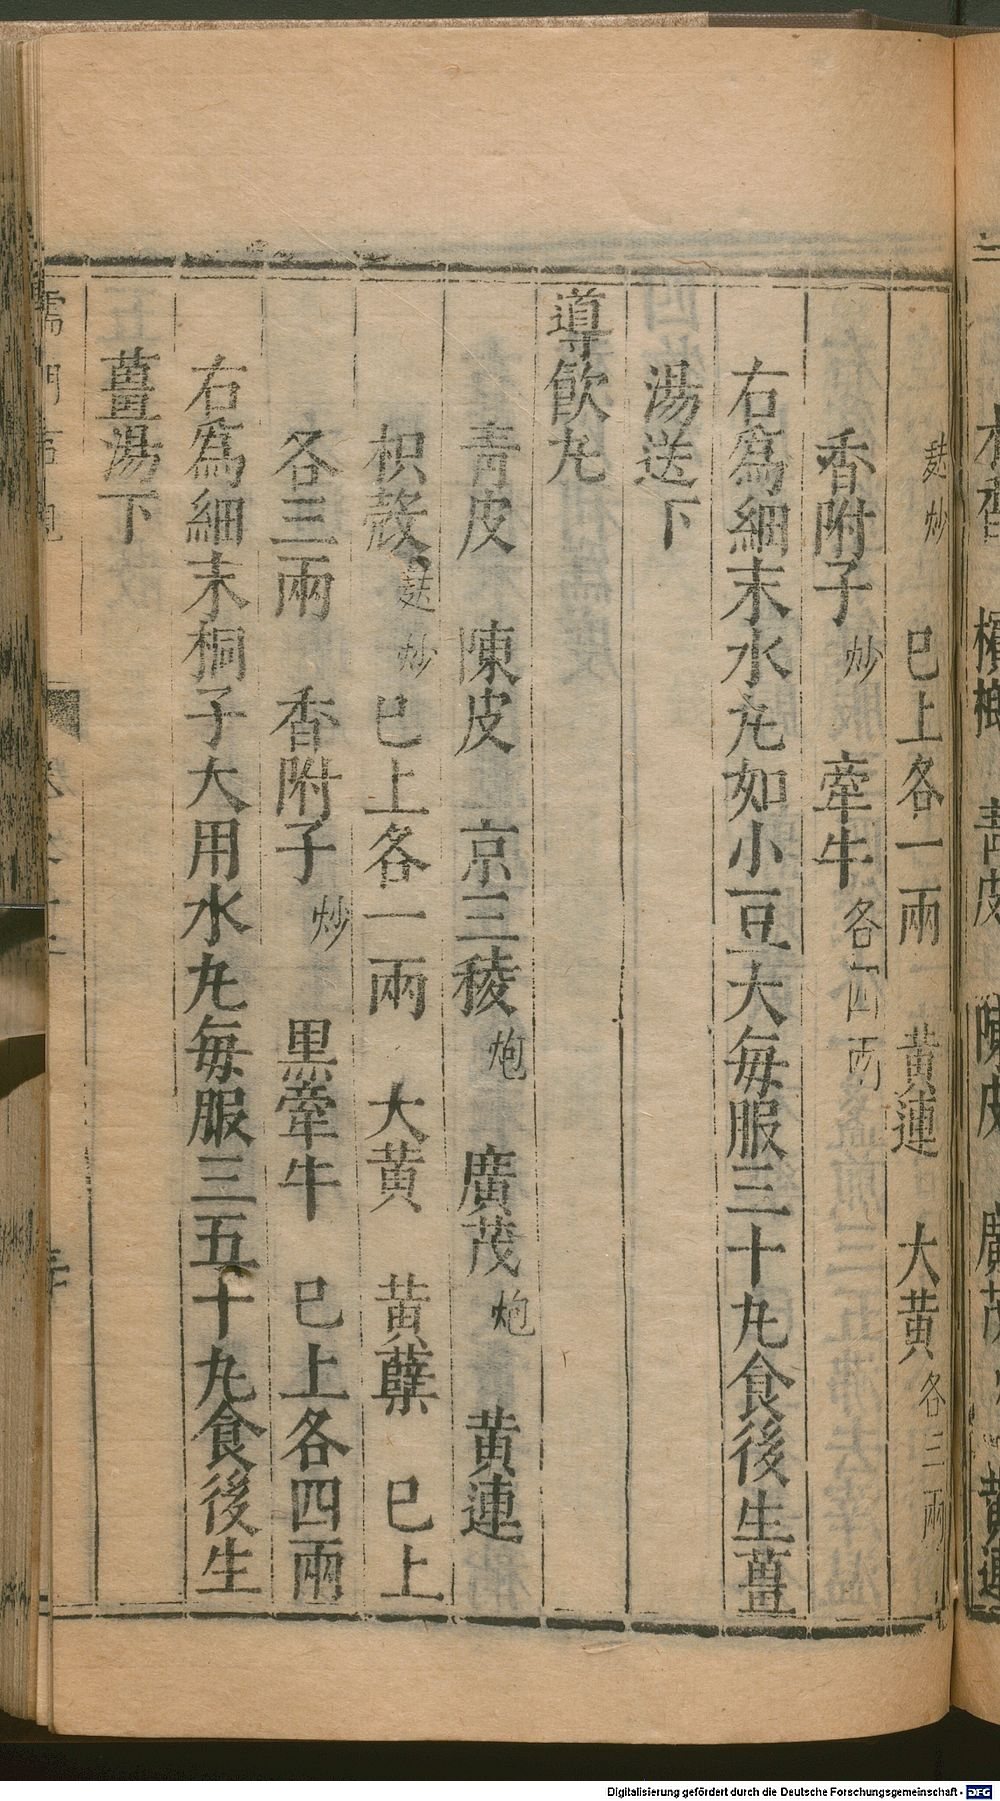 木香　檳榔　青皮　陳皮　廣茂　黃連
麸炒　巳上各一兩　黃連　大黃各三兩
香附子炒　牽牛各四两
右爲細末水丸如小豆大每服三十丸食後生薑
湯送下
導飲丸
青皮　陳皮　京三稜炮　廣茂炮　黃連
枳殼麸炒　巳上各一兩　大黃　黃蘗　巳上
各三兩　香附子炒　黑牽牛　巳上各四兩
右爲細末桐子大用水丸每服三五十丸食後生
薑湯下
儒門
Digitalisierung gefördert durch die Deutsche Forschungsgemeinschaft - DFG